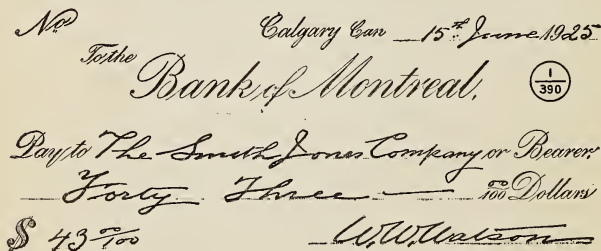 No Calgary Can 15th June 1925
To the
Bank of Montreal.
1
390
Pay to The Smith Jones Company or Bearer.
Forty Three — 00/100 Dollars
$ 43 00/100 W. W. Watson